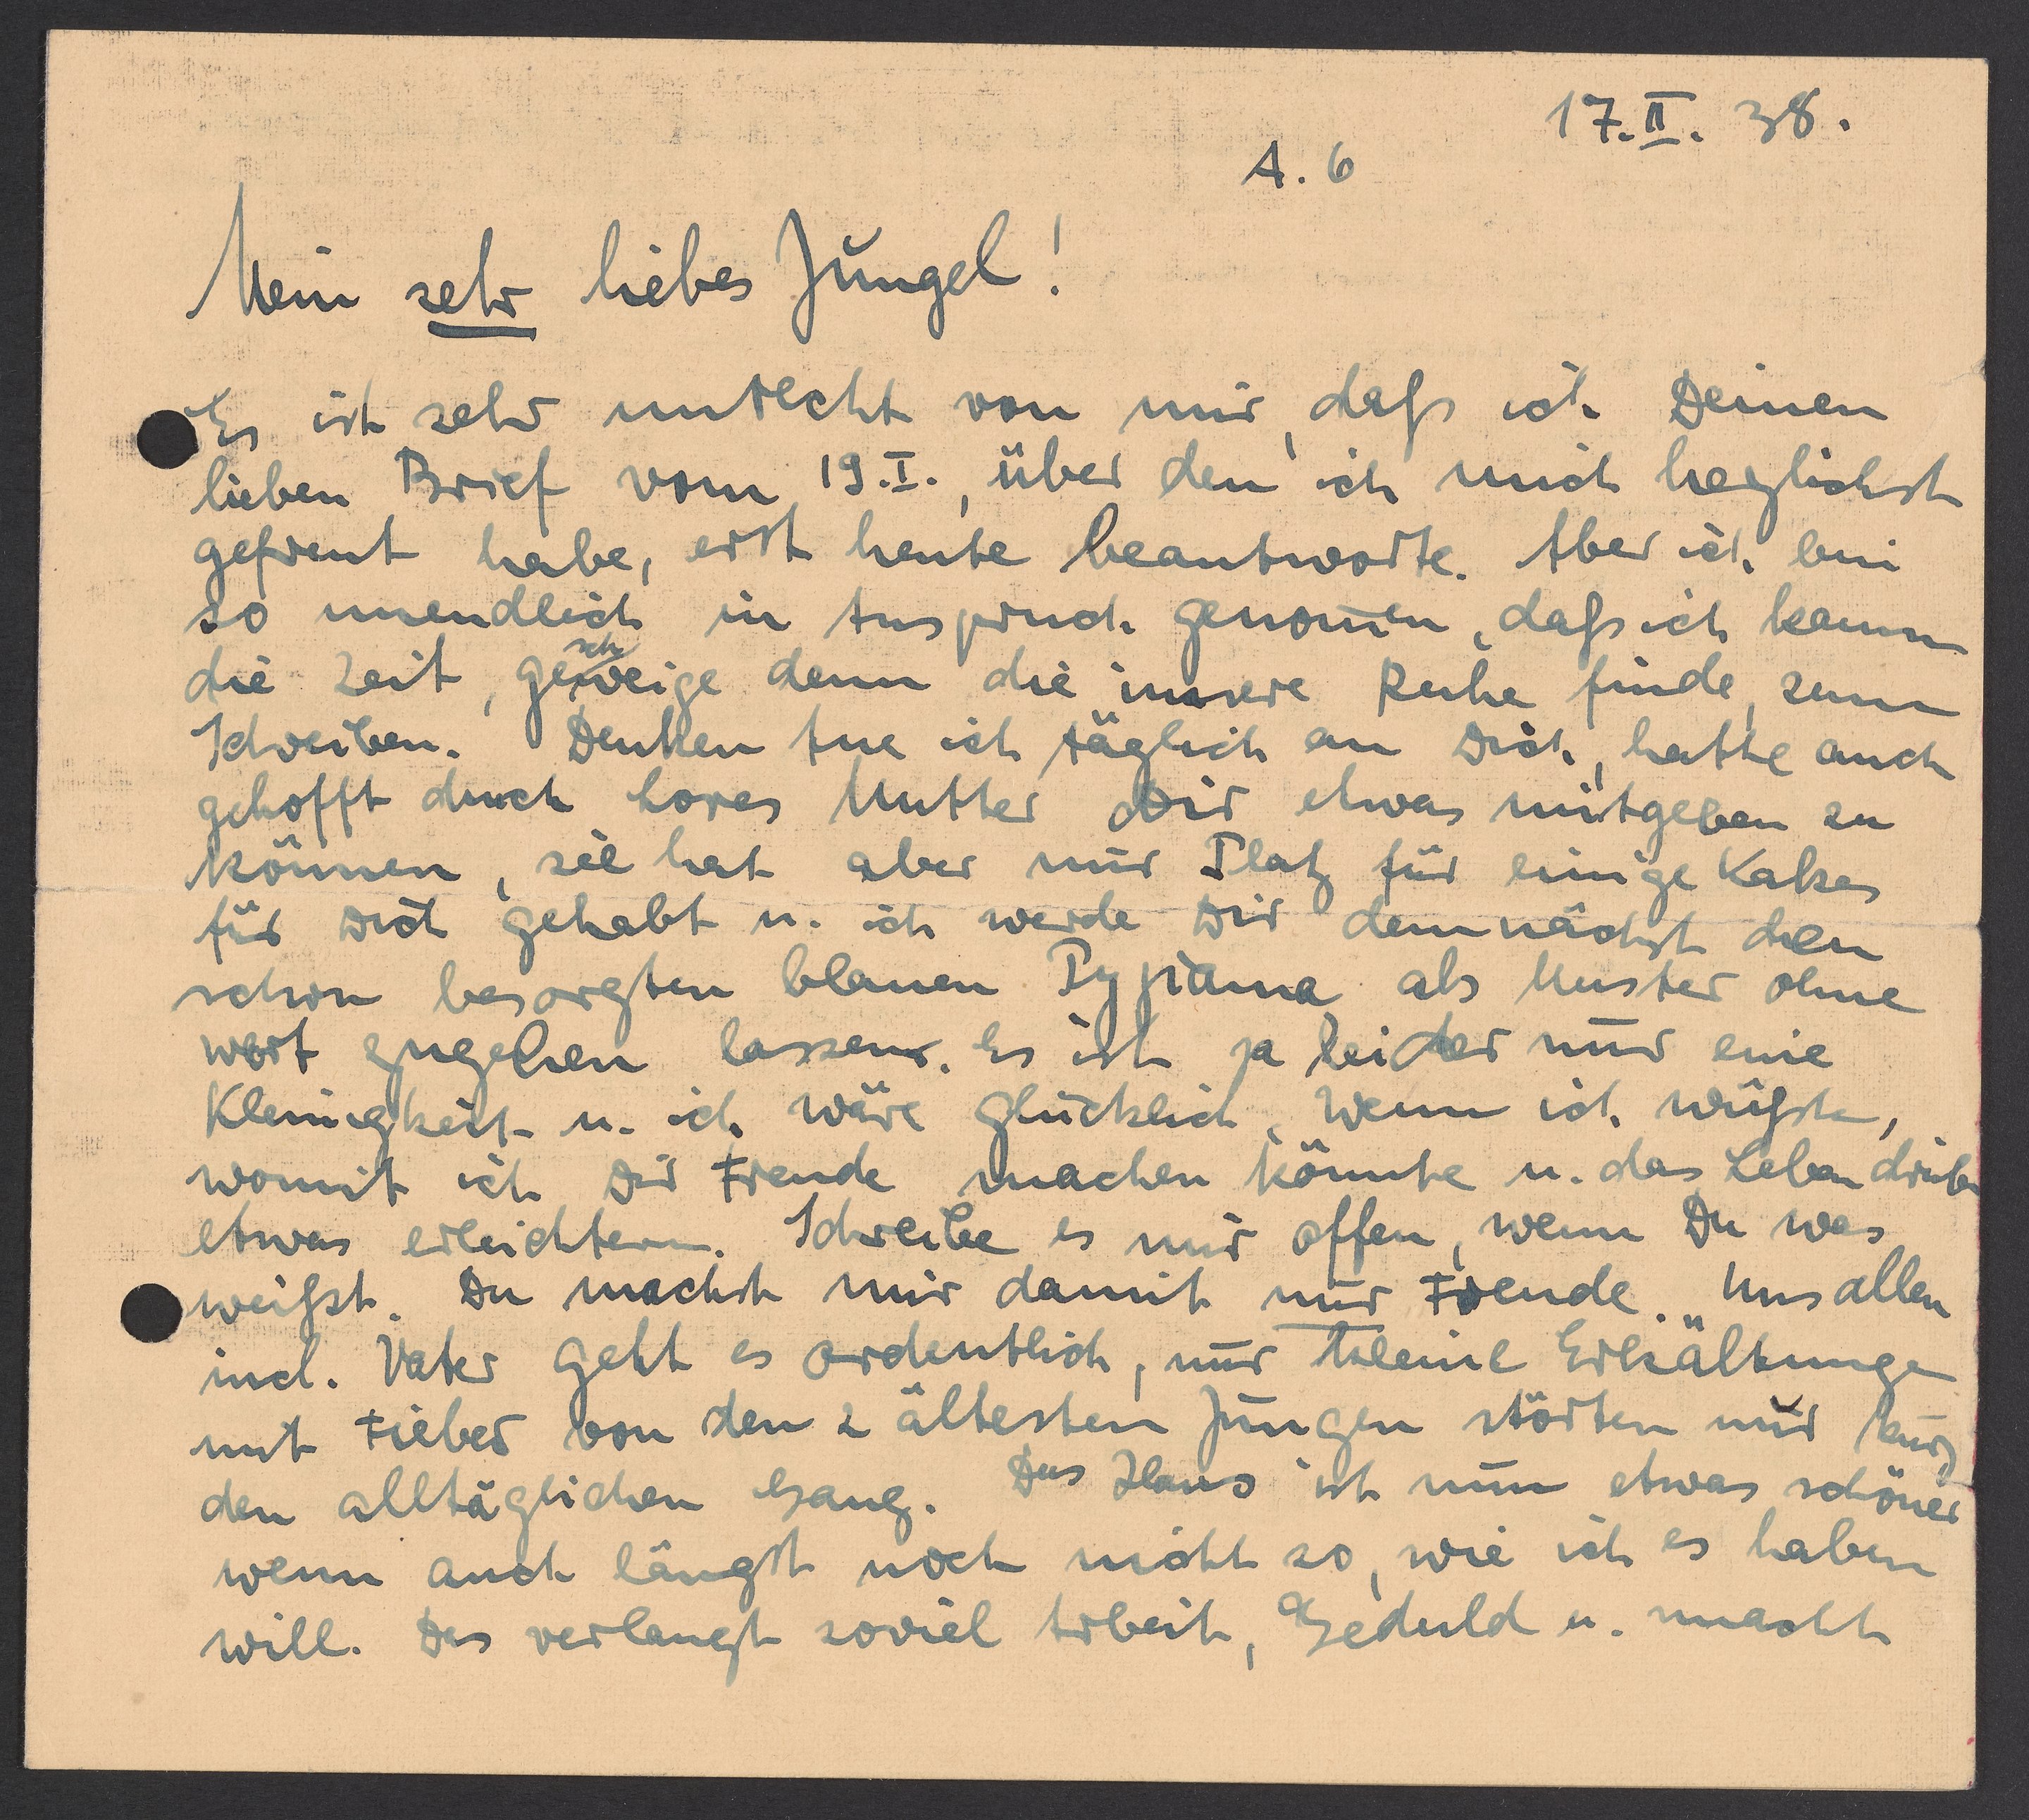 17.II. 38.
A. 6
Mein sehr liebes Jungel!
Es ist sehr unrecht von mir, dass ich Deinen
lieben Brief vom 19.I., über den ich mich herzlichst
gefreut habe, erst heute beantworte. Aber ich bin
so unendlich in Anspruch genom̄en, dass ich kaum
die Zeit, geschweige denn die innere Ruhe finde, zum
Schreiben. Denken tue ich täglich an Dich, hatte auch
gehofft durch Lores Mutter Dir etwas mitgeben zu
können, sie hat aber nur Platz für einige Kakes
für Dich gehabt u. ich werde Dir demnächst den
schon besorgten blauen Pyjiama als Muster ohne
wert zugehen lassen. Es ist ja leider nur eine
Kleinigkeit u. ich wäre glücklich, wenn ich wüsste,
womit ich Dir Freude machen könnte u. das Leben drüben
etwas erleichtern. Schreibe es mir offen, wenn Du was
weisst. Du machst mir damit nur Freude. Uns allen
incl. Vater geht es ordentlich, nur kleine Erkältungen
mit Fieber von den 2 ältesten Jungen störten nur kurz
den alltäglichen Gang. Das Haus ist nun etwas schöner
wenn auch längst noch nicht so, wie ich es haben
will. Das verlangt soviel Arbeit, Geduld u. macht